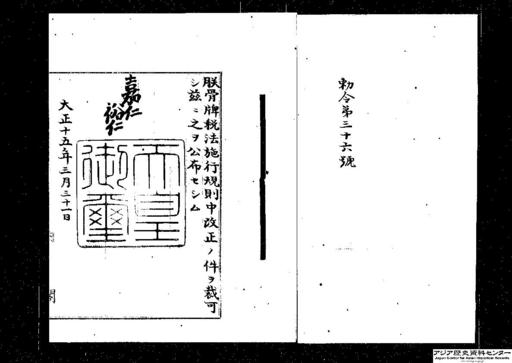 勅令第三十六號
朕骨牌税法施行規則中改正ノ件ヲ裁可
シ茲ニ之ヲ公布セシム
嘉仁
裕仁
天皇御璽
大正十五年三月三十一日
アジア歴史資料センター
Japan Center for Asian Historical Records